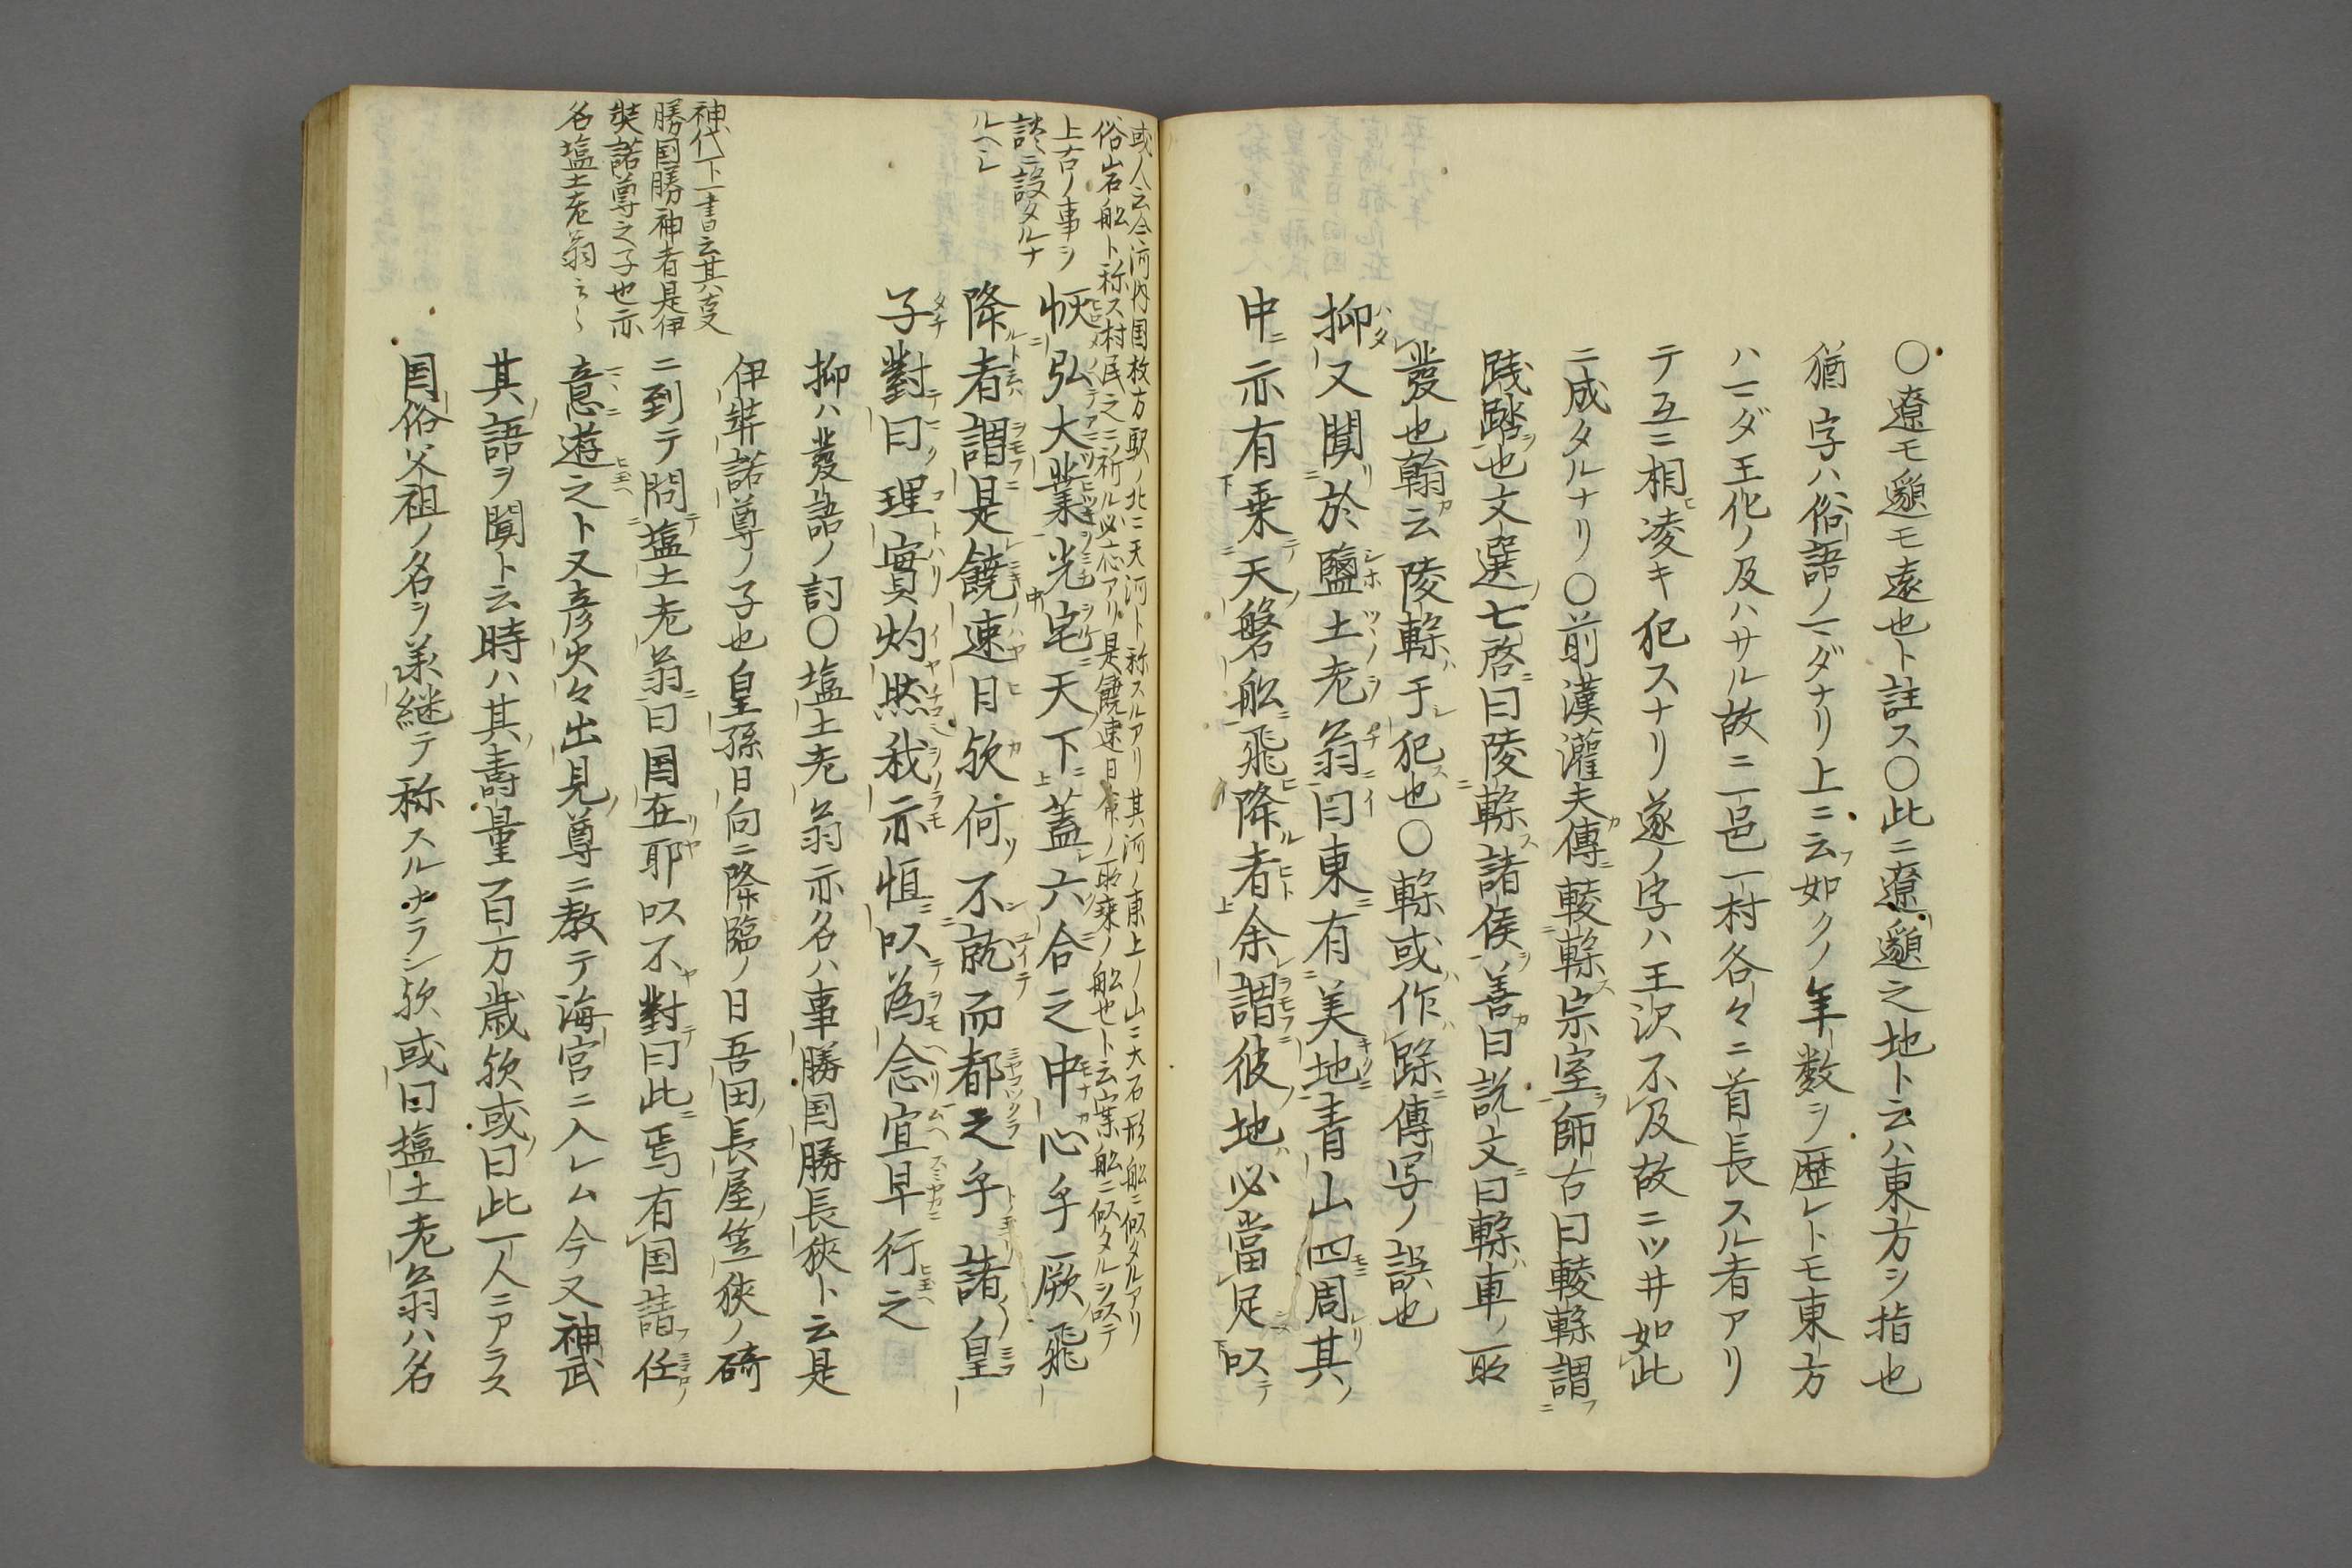 〇遼モ邈モ遠也ト註ス〇此ニ遼邈之地ト云ハ東方ヲ指也
猶字ハ俗語ノマダナリ上ニ云如クノ年数ヲ歴レトモ東方
ハマダ王化ノ及ハサル故ニ一邑一村各々ニ首長スル者アリ
テ互ニ相凌キ犯スナリ遂ノ字ハ王沢不及故ニツヰ如此
ニ成タルナリ〇前漢灌夫傳轥轢宗室師古曰轥轢謂
践踏也文選七啓曰陵轢諸侯善曰説文曰轢車ノ所
發也翰云陵轢于犯也〇轢或作蹂傳写ノ誤也
抑又聞於鹽土老翁曰東有美地青山四周其
中亦有乗天磐船飛降者余謂彼地必當足以
或人云今河内国枚方駅ノ北ニ天河ト称スルアリ其河ノ東上ノ山ニ大石形船ニ似タルアリ
俗岩船ト称ス村民之ニ祈ル必応アリ是饒速日命ノ所乗ノ船也ト云案船ニ似タルヲ以テ
上古ノ事ヲ
談ニ設タルナ
ルヘシ
恢弘大業光宅天下蓋六合之中心乎厥飛
降者謂是饒速日歟何不就而都之乎諸皇
子對曰理實灼然我亦恒以為念宜早行之
抑ハ發語ノ詞〇塩土老翁亦名ハ事勝国勝長狭ト云是
伊弉諾尊ノ子也皇孫日向ニ降臨ノ日吾田長屋笠狭ノ碕
ニ到テ問塩土老翁曰国在耶以不對曰此焉有国請任
意遊之ト又彦火々出見尊ニ教テ海宮ニ入レム今又神武
其語ヲ聞ト云時ハ其壽量百万歳歟或曰此一人ニアラス
国俗父祖ノ名ヲ承継テ称スルナラン歟或曰塩土老翁ハ名
神代下一書云其事
勝国勝神者是伊
弉諾尊之子也亦
名塩土老翁云々